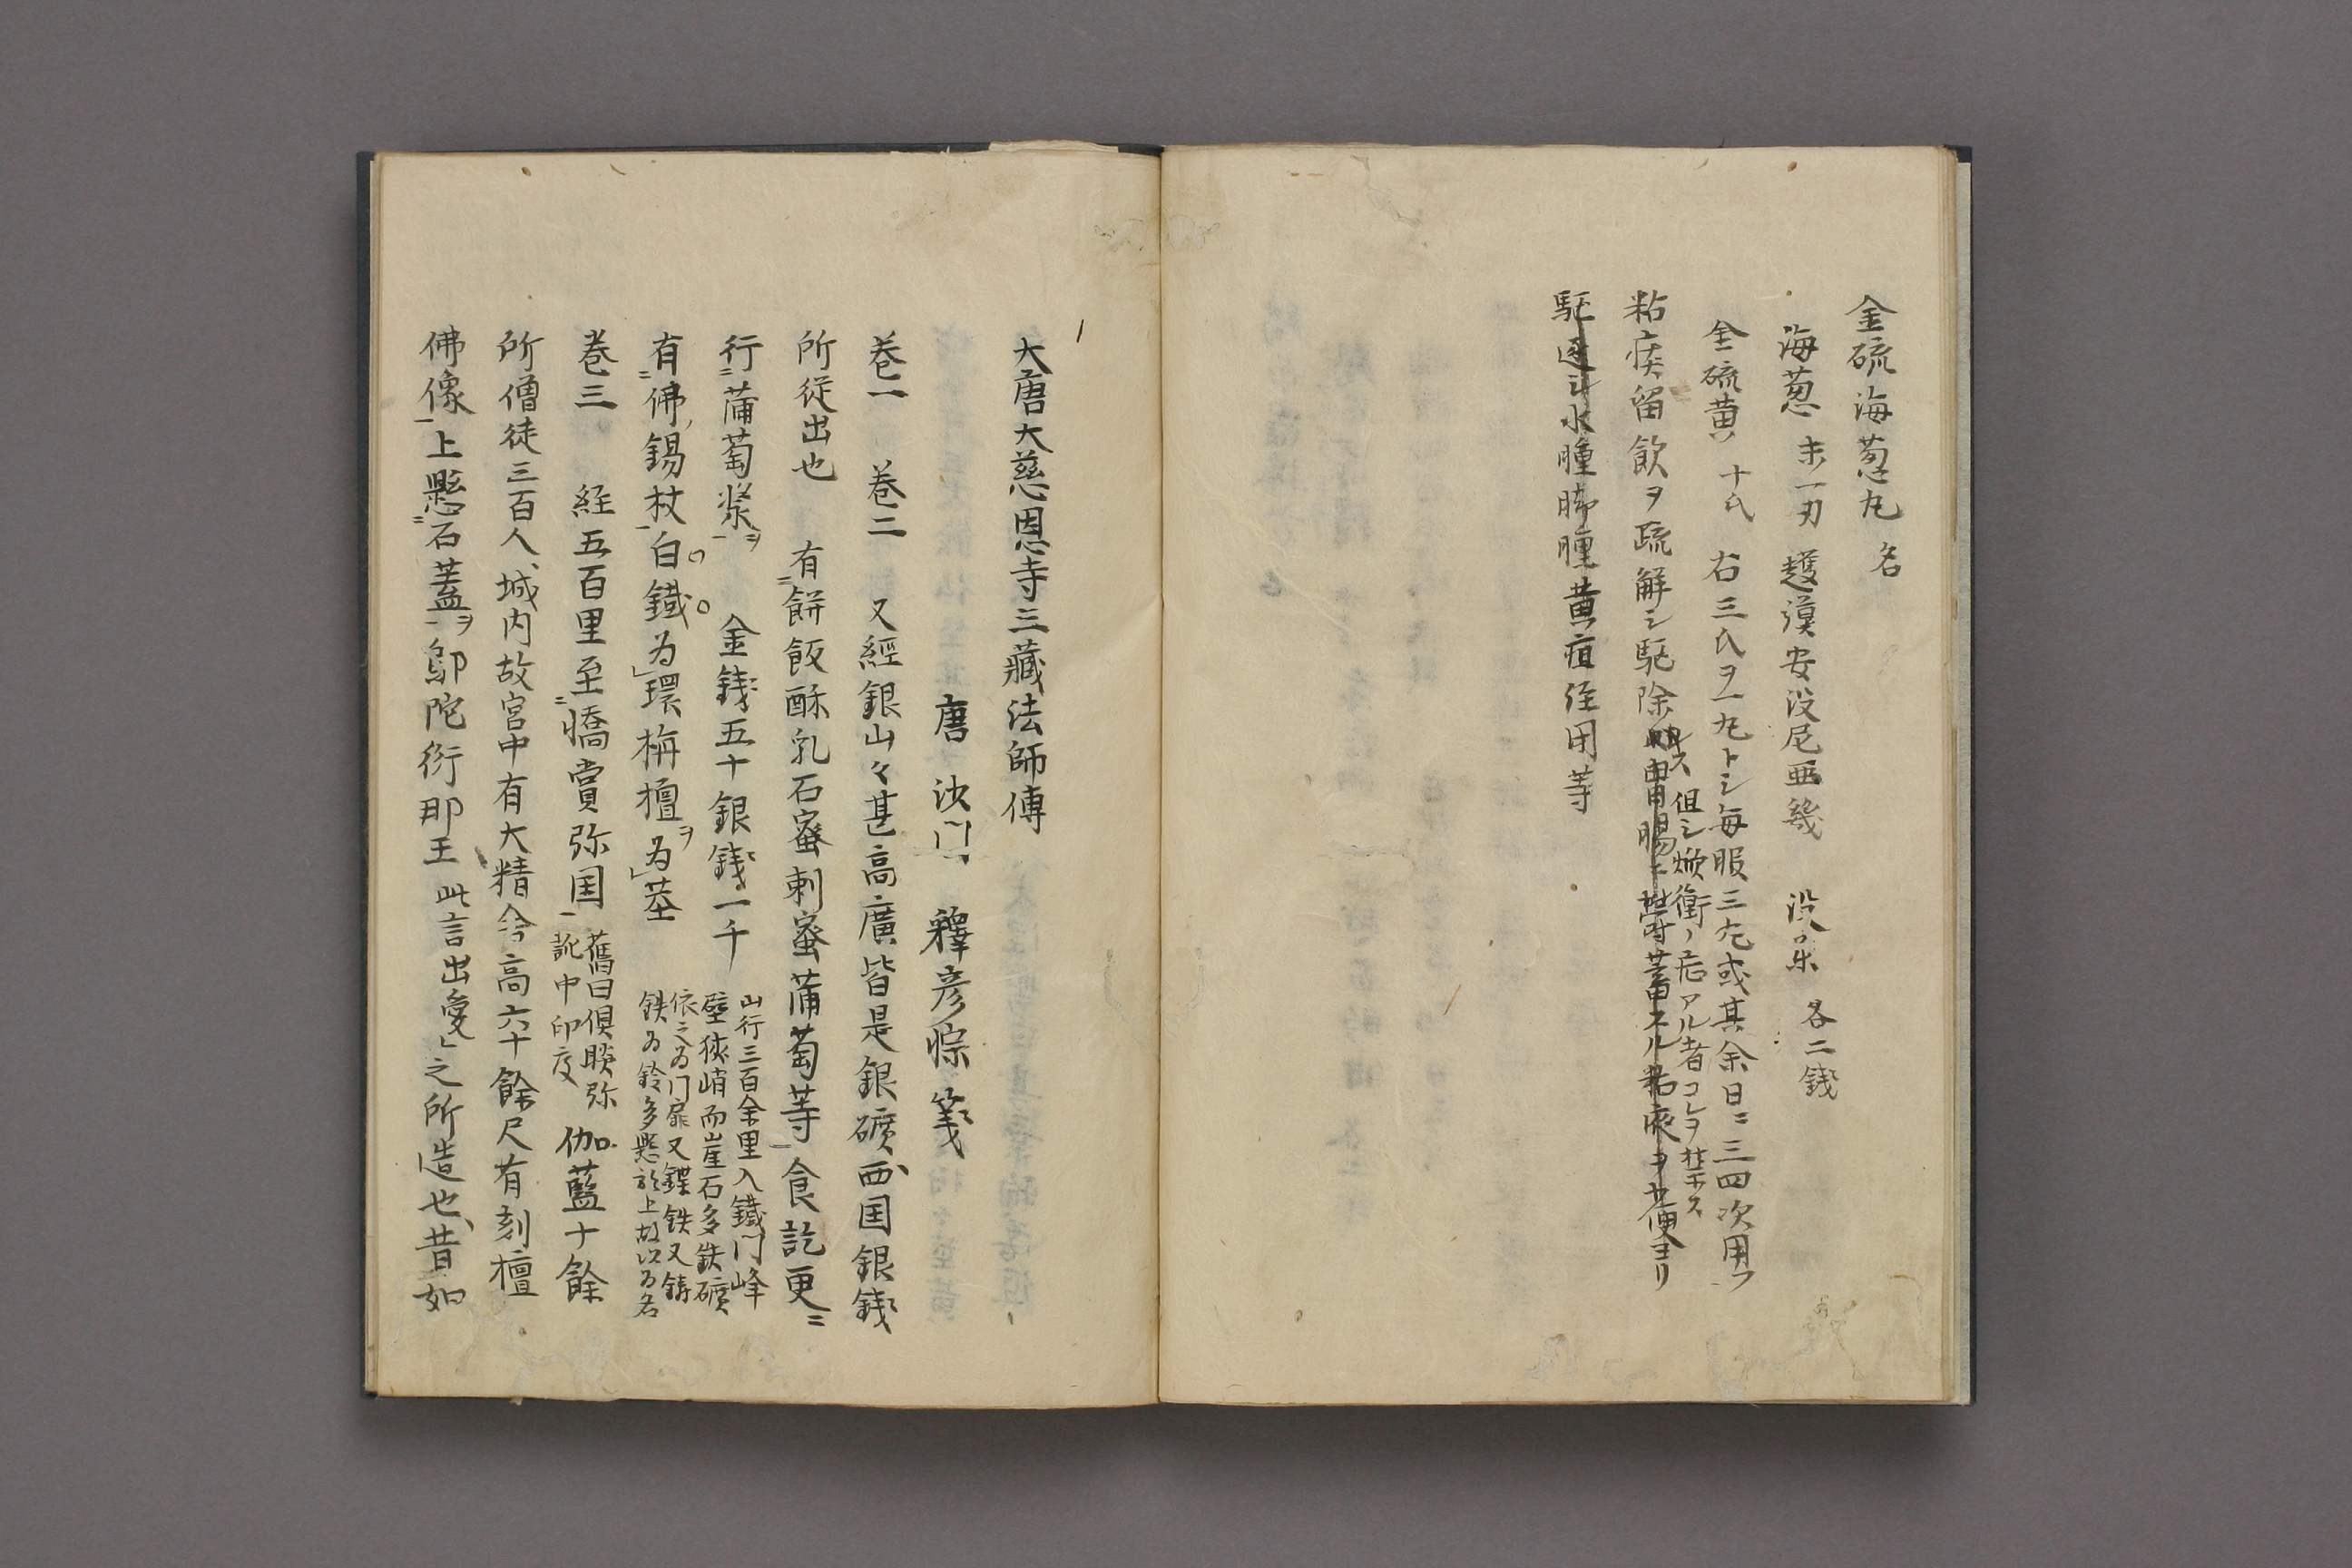 金硫海葱丸 名
海葱 末一刃 䕶謨安没尼亜幾 没薬 各二錢
金硫黄 十氏 右三氏ヲ一丸トシ毎服三丸或其余日ニ三四次用フ
粘痰留飲ヲ疏解シ駆除ス
但シ焮衝ノ症アル者コレヲ禁ス
水腫脚腫黄疸経用等
大唐大慈恩寺三藏法師傳
唐 沙門 釋彦悰 箋
巻一 巻二 又經銀山々甚高廣皆是銀礦西国銀錢
所從出也 有餅飯酥乳石蜜刺蜜蒲萄等食訖更ニ
行蒲萄漿ヲ 金錢五十銀錢一千
山行三百余里入鐵門峰
壁狹峭而崖石多鉄礦
依之為门扉又鍱鉄又鋳
鉄為鈴多懸於上故以為名
有佛錫杖白鐵為環栴檀ヲ為茎
巻三 経五百里至憍賞弥国
舊曰倶睒弥
訛中印度
伽藍十餘
所僧徒三百人城内故宮中有大精舎高六十餘尺有刻檀
佛像上懸石蓋ヲ鄔陀衍那王此言出愛之所造也昔如